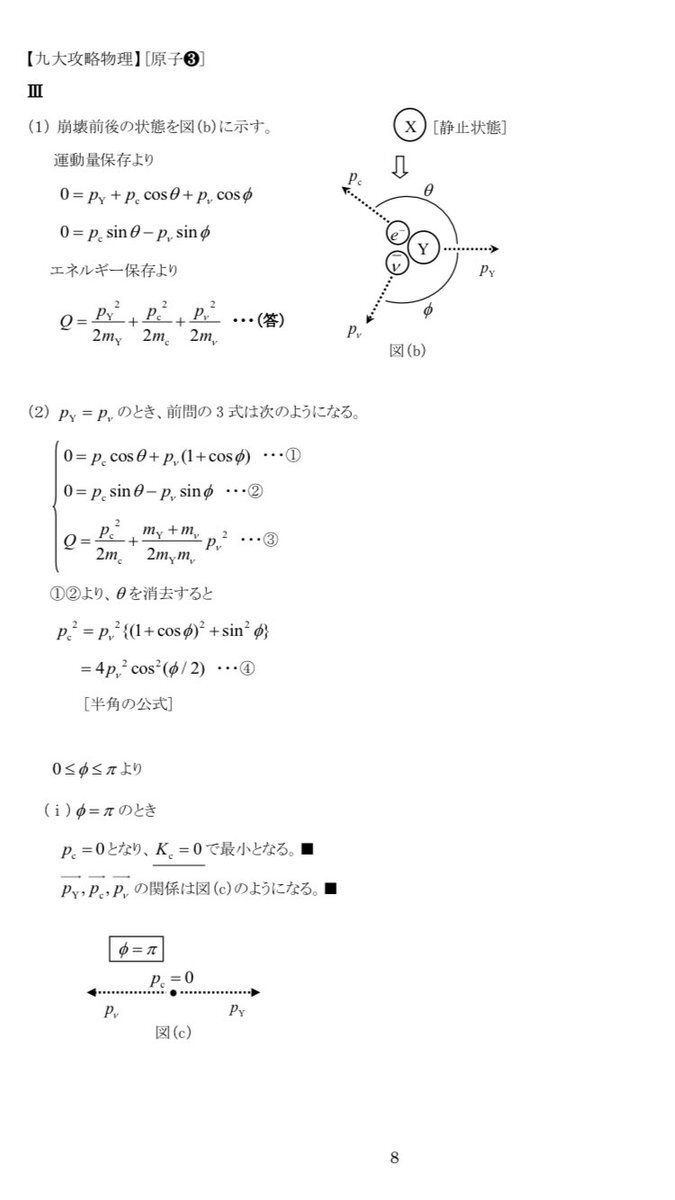 【九大攻略物理】[原子❸]
Ⅲ
(1) 崩壊前後の状態を図(b)に示す。
運動量保存より
0 = p_Y + p_c cosθ + p_ν cosφ
0 = p_c sinθ − p_ν sinφ
エネルギー保存より
Q = p_Y²/2m_Y + p_c²/2m_c + p_ν²/2m_ν ･･･(答)
X [静止状態]
p_c
θ
e⁻
Y
ν̄
p_Y
φ
p_ν
図(b)
(2) p_Y = p_ν のとき、前問の3式は次のようになる。
0 = p_c cosθ + p_ν(1 + cosφ) ･･･①
0 = p_c sinθ − p_ν sinφ ･･･②
Q = p_c²/2m_c + (m_Y + m_ν)/(2m_Y m_ν) p_ν² ･･･③
①②より、θを消去すると
p_c² = p_ν²{(1 + cosφ)² + sin²φ}
= 4p_ν² cos²(φ/2) ･･･④
[半角の公式]
0 ≤ φ ≤ π より
(ⅰ) φ = π のとき
p_c = 0となり、K_c = 0で最小となる。■
p_Y, p_c, p_ν の関係は図(c)のようになる。■
φ = π
p_c = 0
p_ν p_Y
図(c)
8